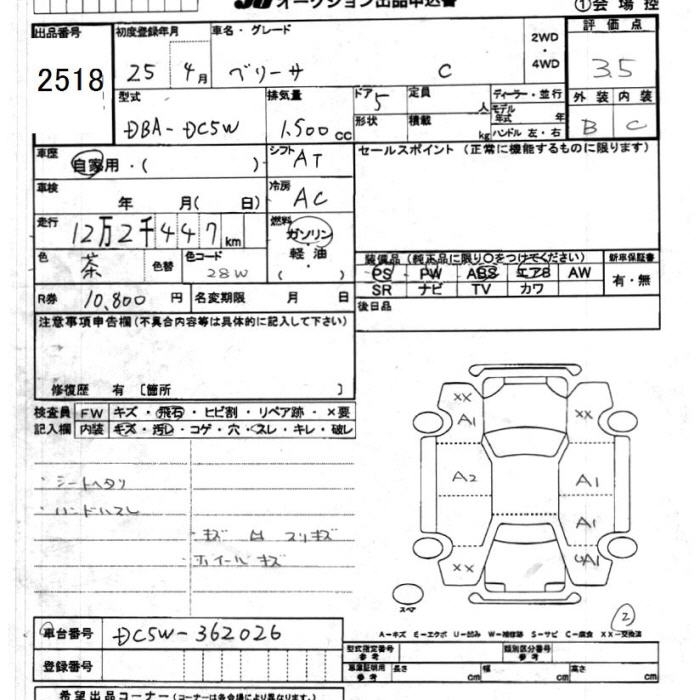 オークション出品申込書
①会場控
出品番号 2518
初度登録年月 25年 4月
車名・グレード ベリーサ C
2WD・4WD
評価点 3.5
型式 DBA-DC5W
排気量 1.500cc
ドア 5
形状
定員 人
積載 kg
ディーラー・並行
モデル年式 年
ハンドル 左・右
外装 内装
B C
車歴 自家用・( )
シフト AT
セールスポイント (正常に機能するものに限ります)
車検 年 月( 日)
冷房 AC
走行 12万2千447km
燃料 ガソリン・軽油・( )
色 茶 色替 色コード 28W
装備品 (純正品に限り○をつけてください)
新車保証書
PS PW ABS エアB AW 有・無
SR ナビ TV カワ
R券 10,800円 名変期限 月 日
後日品
注意事項申告欄 (不具合内容等は具体的に記入して下さい)
修復歴 有 [箇所 ]
検査員記入欄
FW キズ・飛石・ヒビ割・リペア跡・×要
内装 キズ・汚れ・コゲ・穴・スレ・キレ・破レ
・シートヘタリ
・ハンドルスレ
・キズ 凹 スリキズ
ホイールキズ
XX A1 XX
A2 A1
A1
XX UA1
スペア
2
A-キズ E-エクボ U-凹み W-補修跡 S-サビ C-腐食 XX-交換済
車台番号 DC5W-362026
型式指定番号 参考
類別区分番号 参考
登録番号
車庫証明用 参考 長さ cm 幅 cm 高さ cm
希望出品コーナー (コーナーは各会場により異なります。)